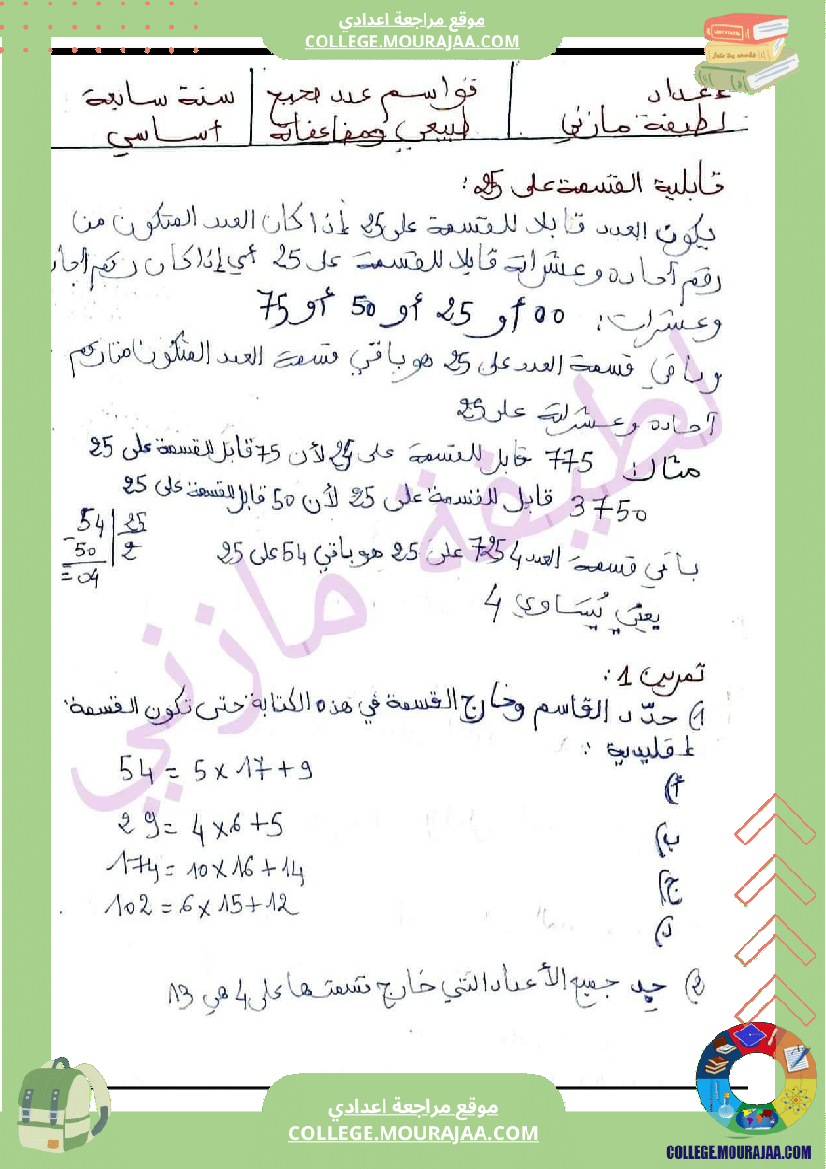 موقع مراجعة اعدادي
COLLEGE.MOURAJAA.COM
إعداد
لطيفة مازني
قواسم عدد صحيح
طبيعي ومضاعفاته
سنة سابعة
أساسي
قابلية القسمة على 25 :
يكون العدد قابلا للقسمة على 25 إذا كان العدد المتكون من
رقم آحاده وعشراته قابلا للقسمة على 25 أي إذا كان رقم آحا
وعشرات : 00 أو 25 أو 50 أو 75
وباقي قسمة العدد على 25 هو باقي قسمة العدد المتكون من رقم
آحاده وعشراته على 25
مثال 775 قابل للقسمة على 25 لأن 75 قابل للقسمة على 25
3750 قابل للقسمة على 25 لأن 50 قابل للقسمة على 25
باقي قسمة العدد 7254 على 25 هو باقي 54 على 25
54 | 25
- 50 | 2
= 04
يعني يُسَاوي 4
تمرين 1 :
1) حدّد القاسم وخارج القسمة في هذه الكتابة حتى تكون القسمة
إقليدية :
أ) 54 = 5 x 17 + 9
ب) 29 = 4 x 6 + 5
ج) 174 = 10 x 16 + 14
د) 102 = 6 x 15 + 12
2) جِد جميع الأعداد التي خارج قسمتها على 4 هي 13
لطيفة مازني
موقع مراجعة اعدادي
COLLEGE.MOURAJAA.COM
COLLEGE.MOURAJAA.COM